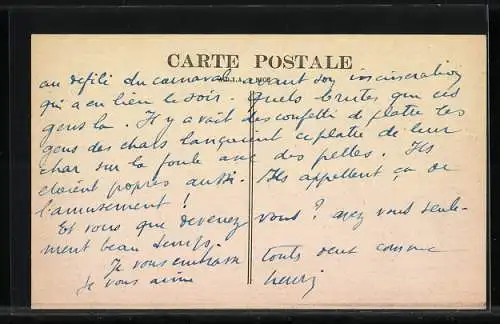 CARTE POSTALE
au defilé du carnaval avant son incineration
qui a eu lieu le soir. Quels brutes que ces
gens la. Il y avait des confetti de platre les
gens des chars lançaient ce platre de leur
char sur la foule avec des pelles. Ils
etaient propres aussi. Ils appellent ça de
l'amusement !
Et vous que devenez vous ? avez vous seule-
ment beau temps.
Je vous embrasse touts deux comme
je vous aime
henri